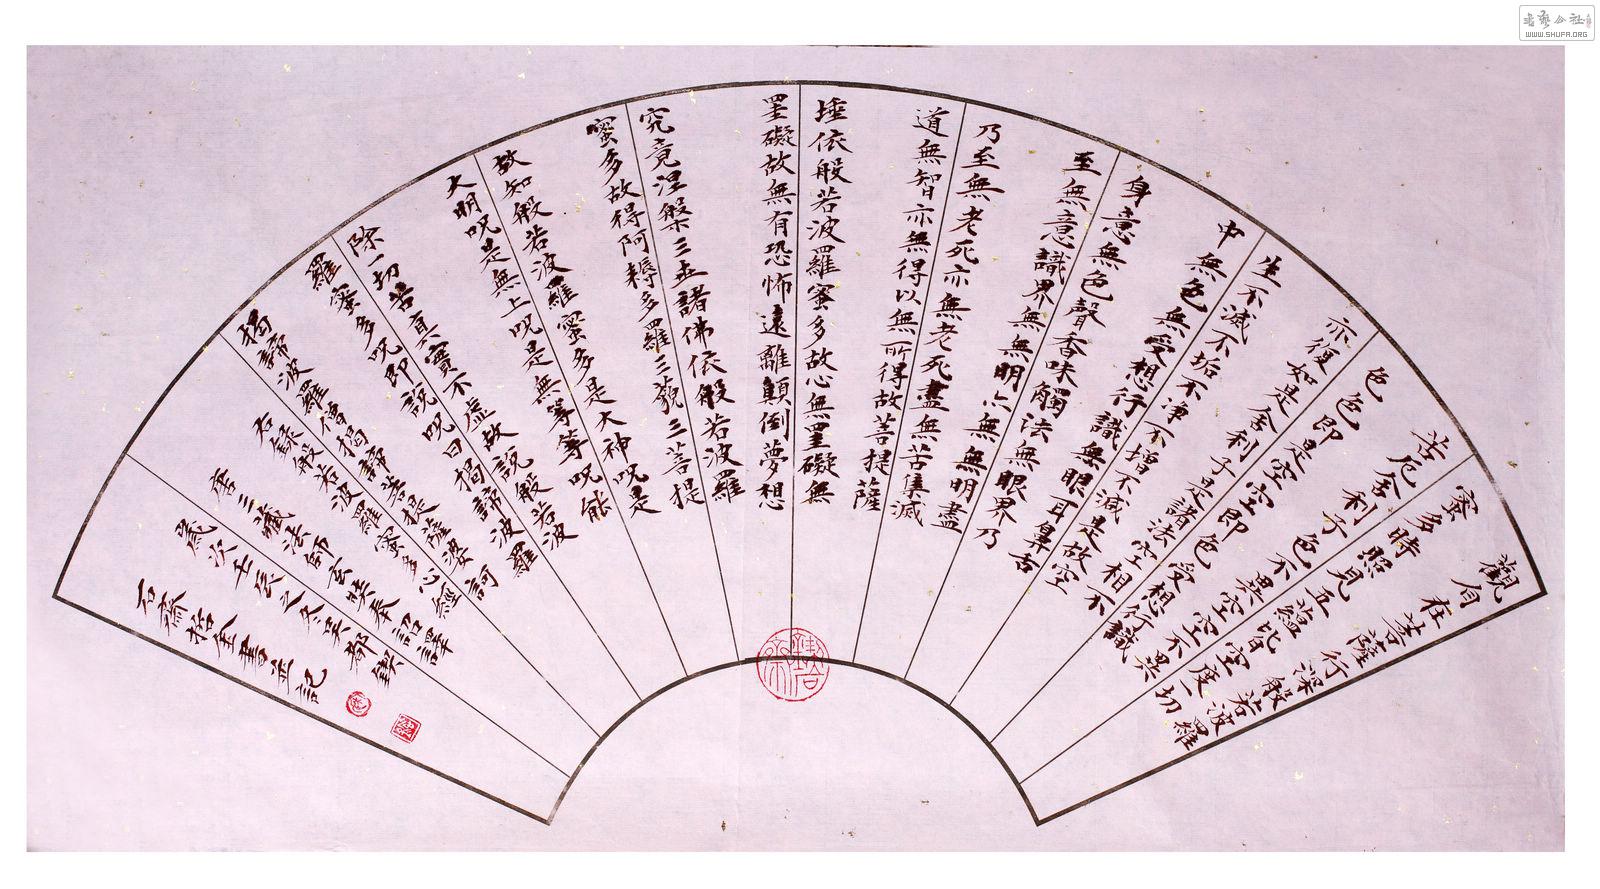 觀自在菩薩行深般若波羅
蜜多時照見五蘊皆空度一切
苦厄舍利子色不異空空不異
色色即是空空即色受想行識
亦復如是舍利子是諸法空相不
生不滅不垢不淨不增不減是故空
中無色無受想行識無眼耳鼻舌
身意無色聲香味觸法無眼界乃
至無意識界無無明亦無無明盡
乃至無老死亦無老死盡無苦集滅
道無智亦無得以無所得故菩提薩
埵依般若波羅蜜多故心無罣礙無
罣礙故無有恐怖遠離顛倒夢想
究竟涅槃三世諸佛依般若波羅
蜜多故得阿耨多羅三藐三菩提
故知般若波羅蜜多是大神呪是
大明呪是無上呪是無等等呪能
除一切苦真實不虛故說般若波
羅蜜多呪即說呪曰揭諦波羅
揭諦波羅僧揭諦菩提薩婆訶
右錄般若波羅蜜多心經
唐三藏法師玄奘奉詔譯
歲次壬辰之冬吳都鐵
石齋拈金書並記
書藝公社
WWW.SHUFA.ORG